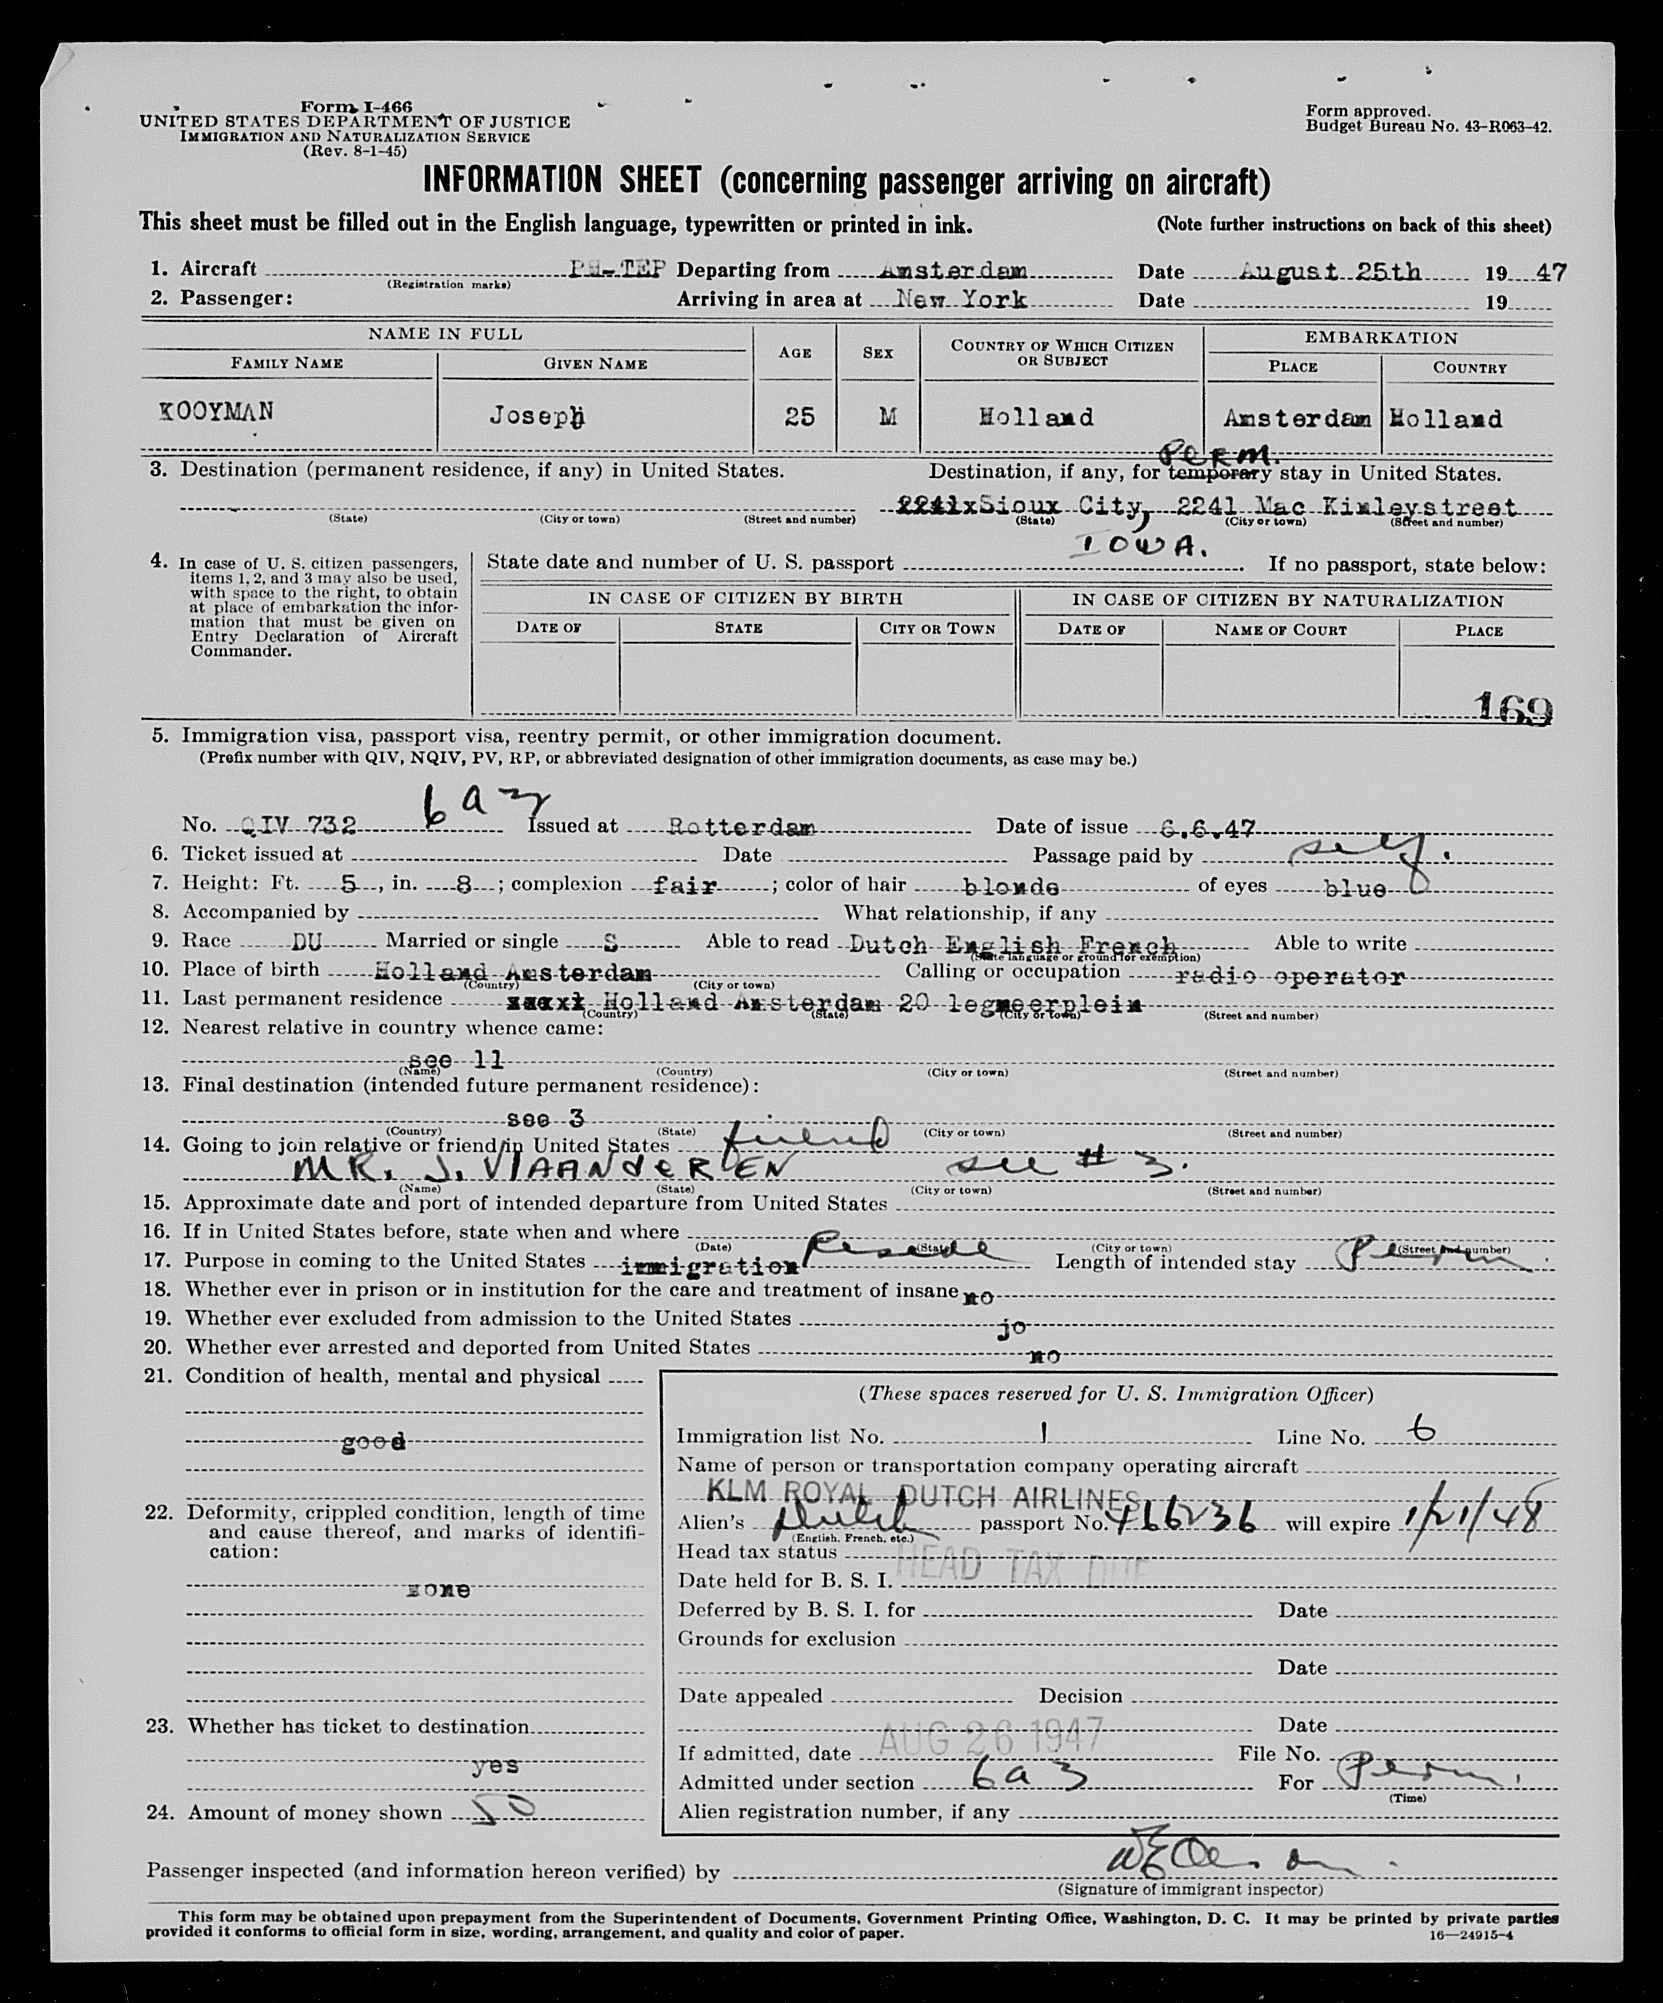 Form I-466
UNITED STATES DEPARTMENT OF JUSTICE
IMMIGRATION AND NATURALIZATION SERVICE
(Rev. 8-1-45)
Form approved.
Budget Bureau No. 43-R063-42.
INFORMATION SHEET (concerning passenger arriving on aircraft)
This sheet must be filled out in the English language, typewritten or printed in ink. (Note further instructions on back of this sheet)
1. Aircraft PH-TEP Departing from Amsterdam Date August 25th 1947
(Registration marks)
2. Passenger: Arriving in area at New York Date 19
NAME IN FULL
FAMILY NAME GIVEN NAME AGE SEX COUNTRY OF WHICH CITIZEN OR SUBJECT EMBARKATION PLACE COUNTRY
KOOYMAN Joseph 25 M Holland Amsterdam Holland
PERM.
3. Destination (permanent residence, if any) in United States. Destination, if any, for temporary stay in United States.
2241x Sioux City, 2241 Mac Kinleystreet
(State) (City or town) (Street and number) (State) (City or town) (Street and number)
IOWA.
4. In case of U. S. citizen passengers, items 1, 2, and 3 may also be used, with space to the right, to obtain at place of embarkation the information that must be given on Entry Declaration of Aircraft Commander.
State date and number of U. S. passport If no passport, state below:
IN CASE OF CITIZEN BY BIRTH IN CASE OF CITIZEN BY NATURALIZATION
DATE OF STATE CITY OR TOWN DATE OF NAME OF COURT PLACE
169
5. Immigration visa, passport visa, reentry permit, or other immigration document.
(Prefix number with QIV, NQIV, PV, RP, or abbreviated designation of other immigration documents, as case may be.)
6a3
No. QIV 732 Issued at Rotterdam Date of issue 6.6.47
6. Ticket issued at Date Passage paid by self.
7. Height: Ft. 5, in. 8; complexion fair; color of hair blonde of eyes blue
8. Accompanied by What relationship, if any
9. Race DU Married or single S Able to read Dutch English French Able to write
(State language or ground for exemption)
10. Place of birth Holland Amsterdam Calling or occupation radio operator
(Country) (City or town)
11. Last permanent residence Holland Amsterdam 20 legmeerplein
(Country) (State) (City or town) (Street and number)
12. Nearest relative in country whence came:
see 11
(Name) (Country) (City or town) (Street and number)
13. Final destination (intended future permanent residence):
see 3
(Country) (State) (City or town) (Street and number)
14. Going to join relative or friend in United States friend
MR. J. VlAANdeREN see # 3.
(Name) (State) (City or town) (Street and number)
15. Approximate date and port of intended departure from United States
16. If in United States before, state when and where
(Date) (State) (City or town) (Street and number)
17. Purpose in coming to the United States immigration Reside Length of intended stay Perm.
18. Whether ever in prison or in institution for the care and treatment of insane no
19. Whether ever excluded from admission to the United States jo
20. Whether ever arrested and deported from United States no
21. Condition of health, mental and physical
good
22. Deformity, crippled condition, length of time and cause thereof, and marks of identification:
none
23. Whether has ticket to destination
yes
24. Amount of money shown 50
(These spaces reserved for U. S. Immigration Officer)
Immigration list No. 1 Line No. 6
Name of person or transportation company operating aircraft
KLM ROYAL DUTCH AIRLINES
Alien's Dutch passport No. 466236 will expire 1/21/48
(English, French, etc.)
Head tax status HEAD TAX DUE
Date held for B. S. I.
Deferred by B. S. I. for Date
Grounds for exclusion
Date
Date appealed Decision
Date
If admitted, date AUG 26 1947 File No.
Admitted under section 6a3 For Perm.
(Time)
Alien registration number, if any
Passenger inspected (and information hereon verified) by
(Signature of immigrant inspector)
This form may be obtained upon prepayment from the Superintendent of Documents, Government Printing Office, Washington, D. C. It may be printed by private parties
provided it conforms to official form in size, wording, arrangement, and quality and color of paper. 16—24915-4